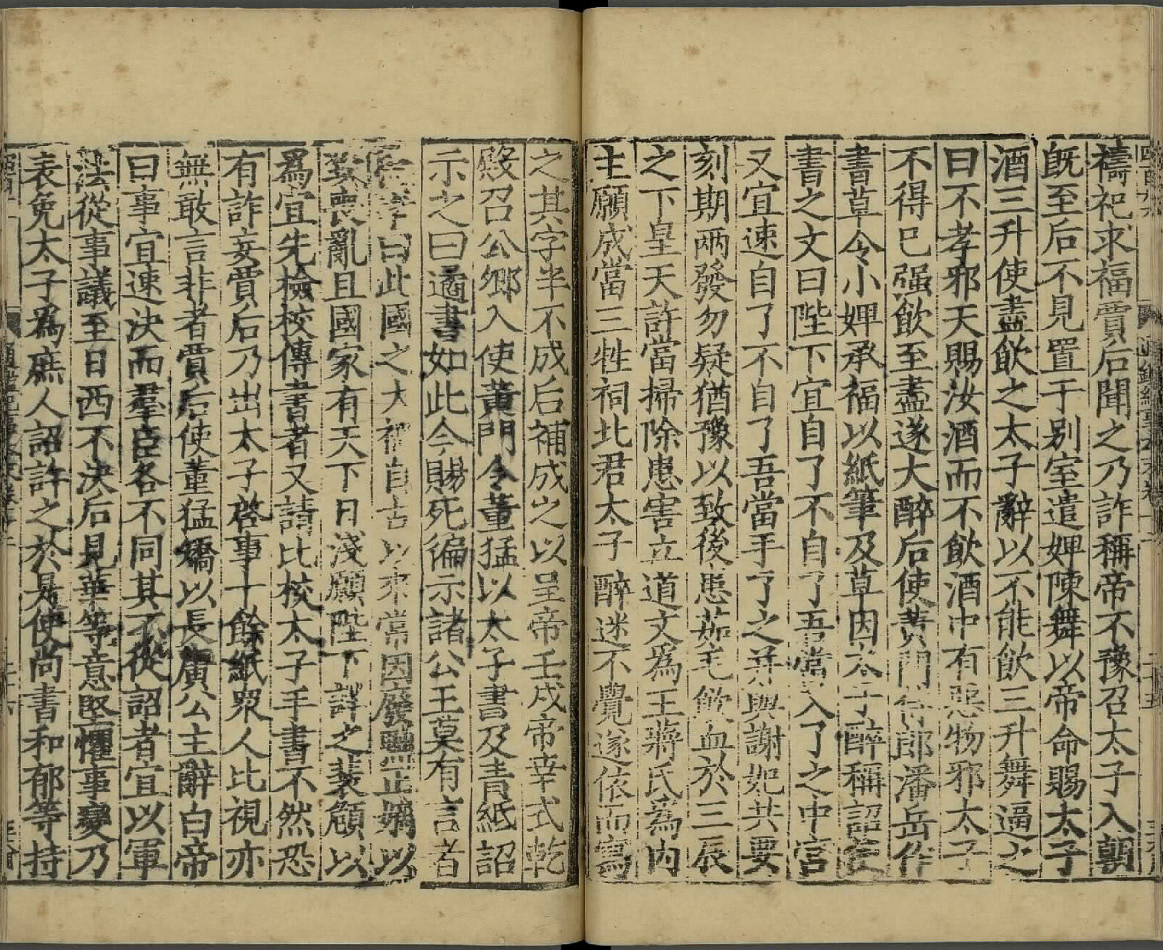 禱祀求福賈后聞之乃詐稱帝不豫召太子入朝
既至后不見置于别室遣婢陳舞以帝命賜太子
酒三升使盡飲之太子辭以不能飲三升舞逼之
曰不孝邪天賜汝酒而不飲酒中有惡物邪太子
不得已强飲至盡遂大醉后使黃門侍郎潘岳作
書草令小婢承福以紙筆及草因太子醉稱詔使
書之文曰陛下宜自了不自了吾當入了之中宮
又宜速自了不自了吾當手了之并與謝妃共要
刻期兩發勿疑猶豫以致後患茹毛飲血於三辰
之下皇天許當掃除患害立道文爲王蔣氏爲内
主願成當三牲祠北君太子醉迷不覺遂依而寫
之其字半不成后補成之以呈帝壬戌帝幸式乾
殿召公卿入使黃門令董猛以太子書及青紙詔
示之曰遹書如此今賜死徧示諸公王莫有言者
張華曰此國之大禍自古以來常因廢黜正嫡以
致喪亂且國家有天下日淺願陛下詳之裴頠以
爲宜先檢校傳書者又請比校太子手書不然恐
有詐妄賈后乃出太子啓事十餘紙衆人比視亦
無敢言非者賈后使董猛矯以長廣公主辭白帝
曰事宜速決而羣臣各不同其不從詔者宜以軍
法從事議至日西不決后見華等意堅懼事變乃
表免太子爲庶人詔許之於是使尚書和郁等持